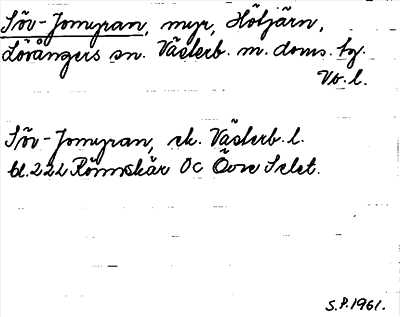 Söv-Jomyran, myr, Hötjärn,
Lövångers sn. Västerb. m. doms. tg.
Vb. l.
Söv-Jomyran, ek. Västerb. l.
bl. 222 Rönnskär Oc Övre Selet.
S.P. 1961.